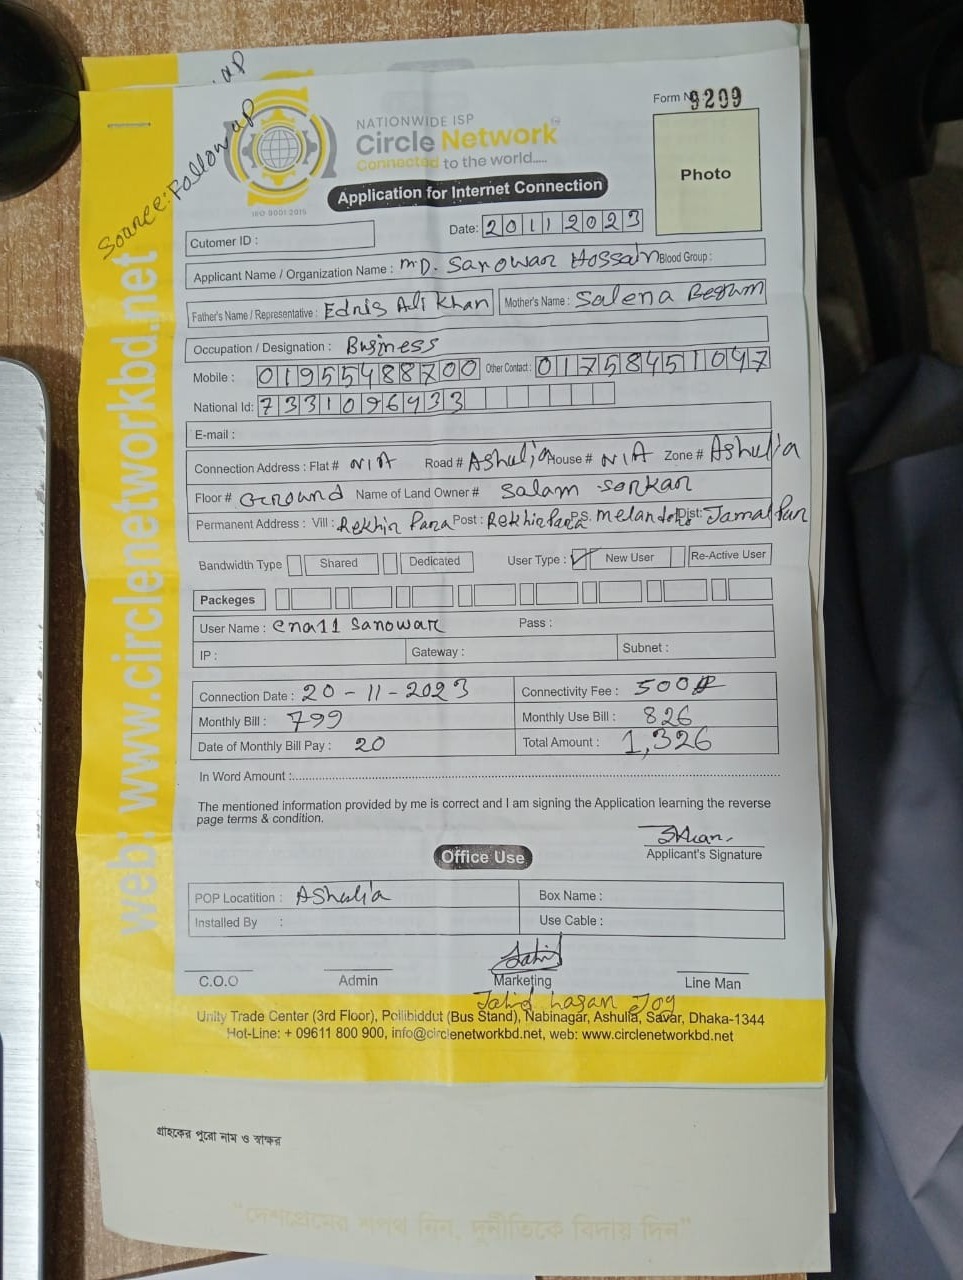 Source: Follow up
up
NATIONWIDE ISP
Circle Network
Connected to the world.....
ISO 9001:2015
Form N 9209
Photo
Application for Internet Connection
Cutomer ID :
Date: 20112023
Applicant Name / Organization Name : MD. Sanowar Hossain Blood Group :
Father's Name / Representative : Ednis Ali Khan Mother's Name : Salena Begum
Occupation / Designation : Business
Mobile : 01955488700 Other Contact : 01758451047
National Id: 7331096933
E-mail :
Connection Address : Flat # N/A Road # Ashulia House # N/A Zone # Ashulia
Floor # Ground Name of Land Owner # Salam Sorkar
Permanent Address : Vill : Rekhir Para Post : Rekhir Para P.S. Dist: Jamalpur
Bandwidth Type Shared Dedicated User Type : New User Re-Active User
Packeges
User Name : ena11 Sanowar Pass :
IP : Gateway : Subnet :
Connection Date : 20-11-2023 Connectivity Fee : 500
Monthly Bill : 799 Monthly Use Bill : 826
Date of Monthly Bill Pay : 20 Total Amount : 1,326
In Word Amount :
The mentioned information provided by me is correct and I am signing the Application learning the reverse
page terms & condition.
Applicant's Signature
Office Use
POP Locatition : Ashulia Box Name :
Installed By : Use Cable :
C.O.O Admin Marketing Line Man
Jahid hasan Joy
Unity Trade Center (3rd Floor), Pollibiddut (Bus Stand), Nabinagar, Ashulia, Savar, Dhaka-1344
Hot-Line: + 09611 800 900, info@circlenetworkbd.net, web: www.circlenetworkbd.net
web: www.circlenetworkbd.net
গ্রাহকের পুরো নাম ও স্বাক্ষর
"দেশপ্রেমের শপথ নিন, দুর্নীতিকে বিদায় দিন"